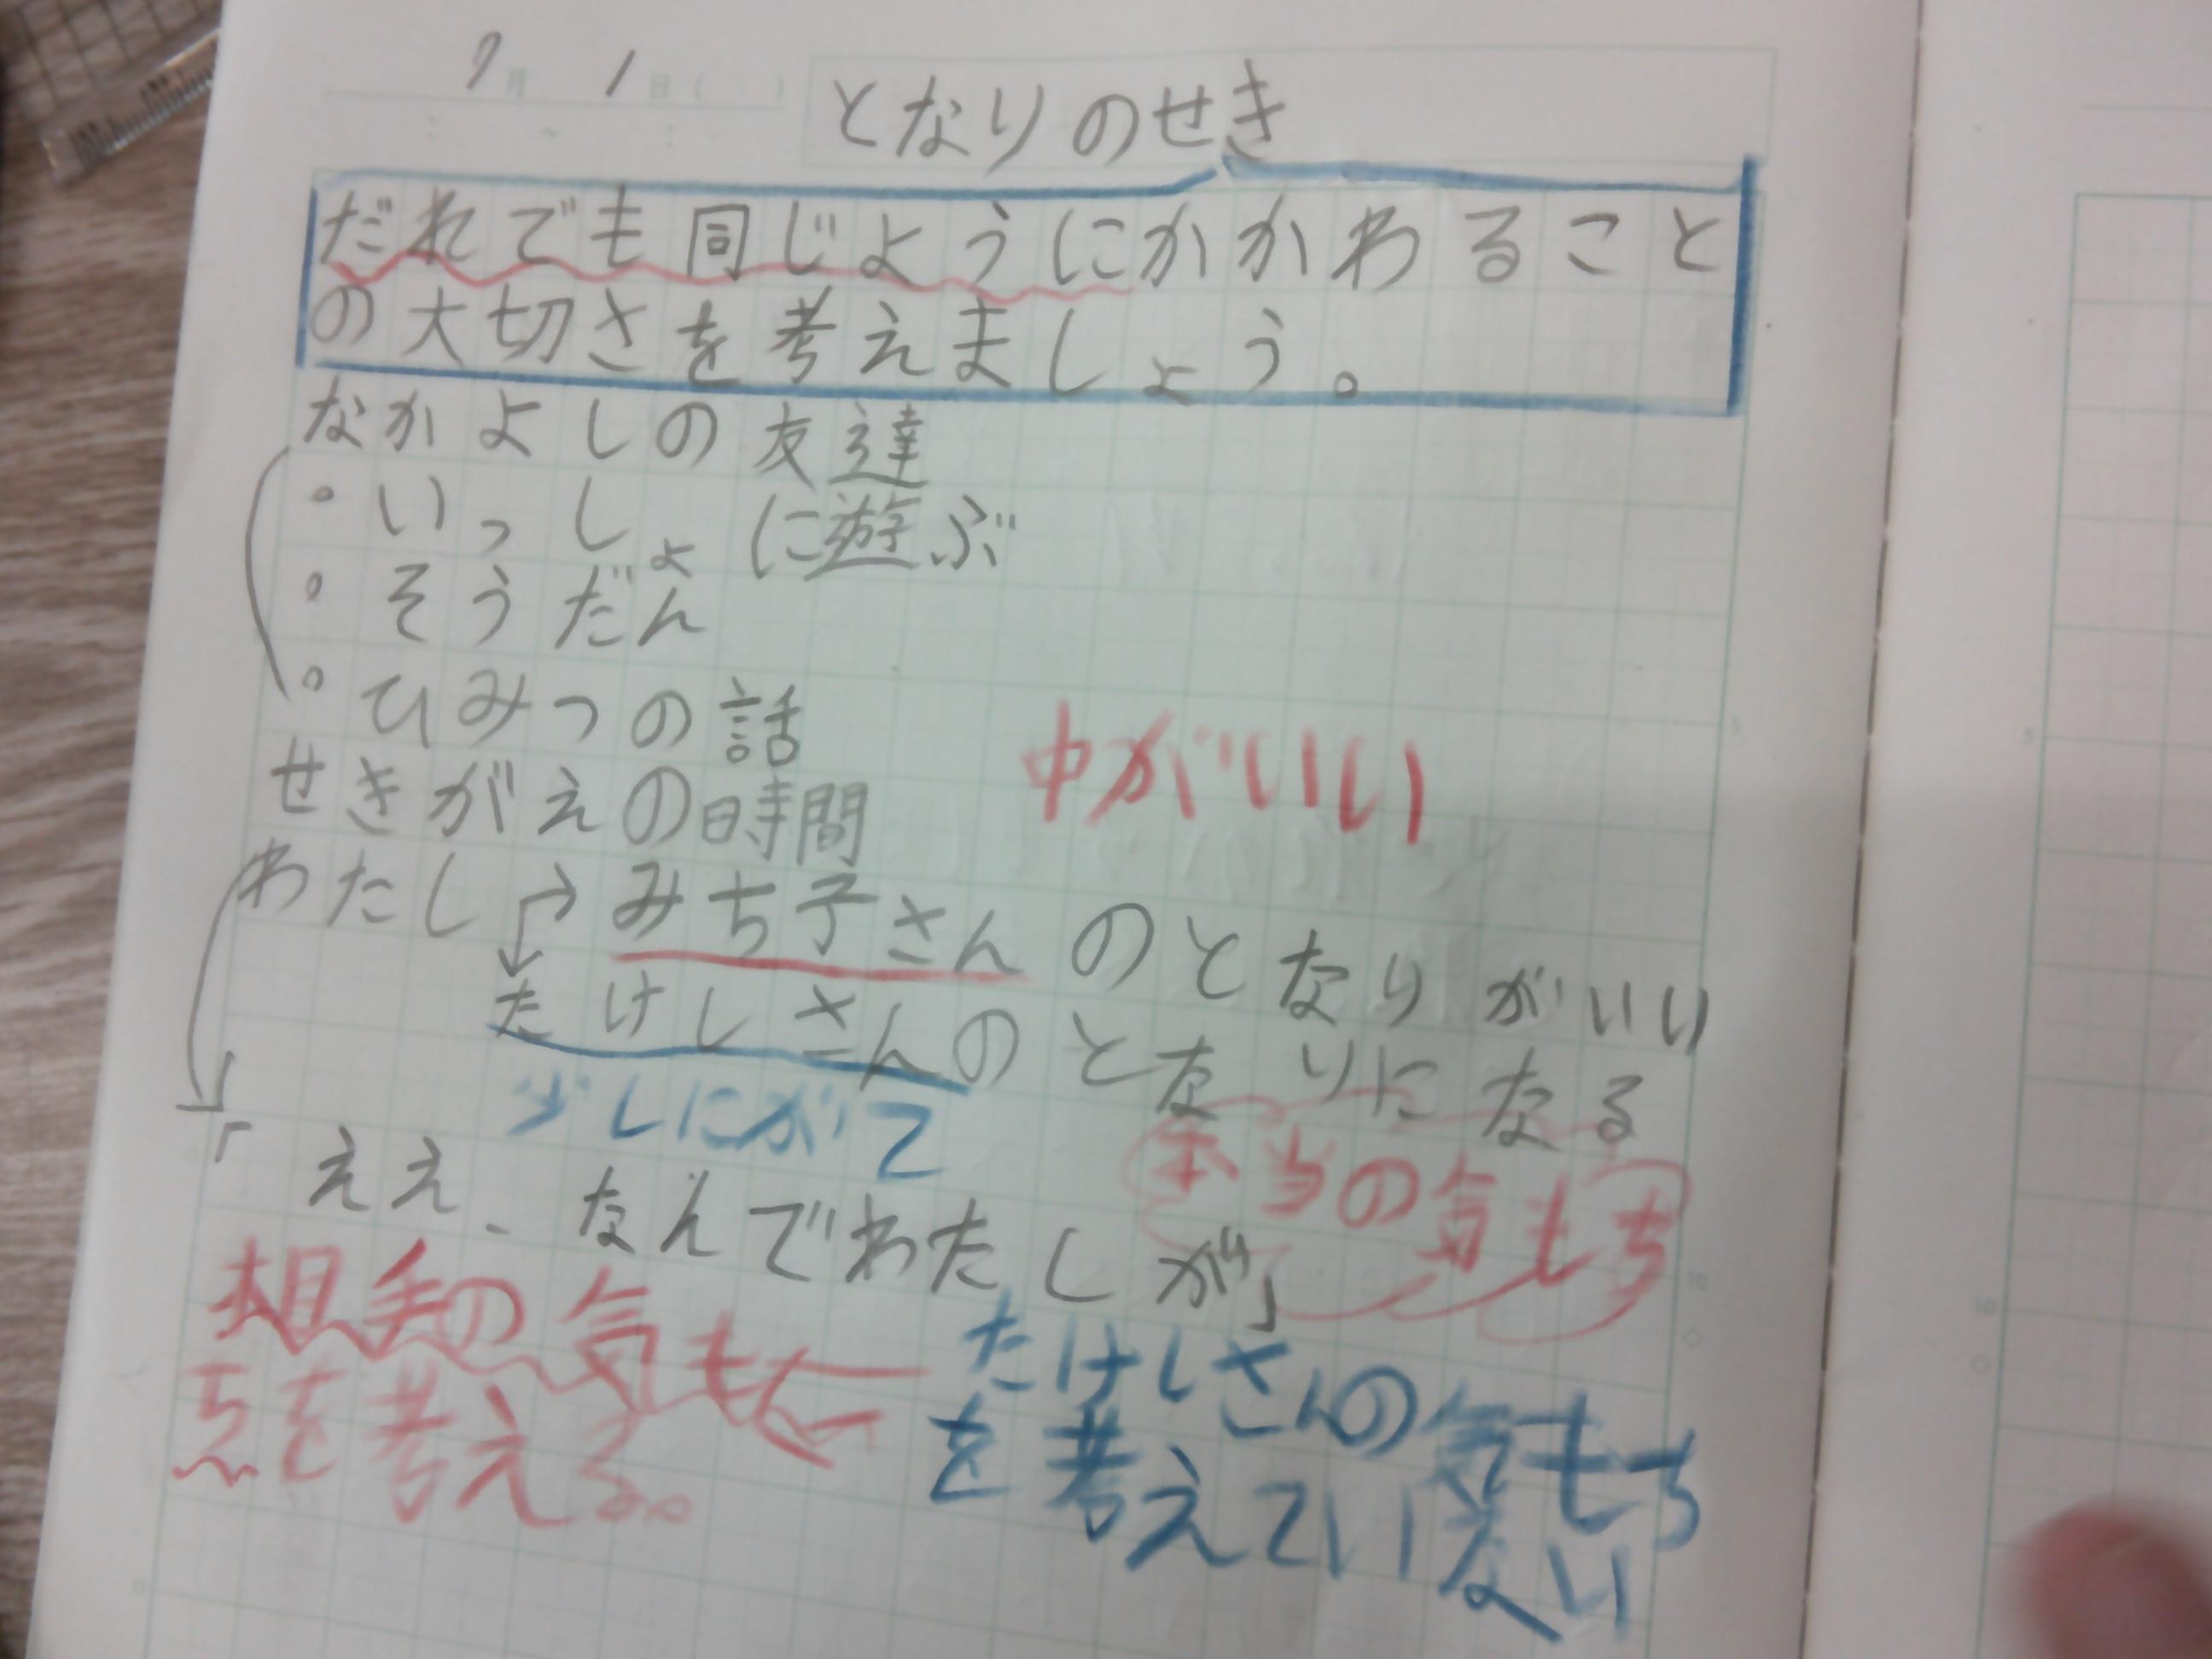 7月 1日( )
となりのせき
だれでも同じようにかかわること
の大切さを考えましょう。
なかよしの友達
・いっしょに遊ぶ
・そうだん
・ひみつの話
中がいい
せきがえの時間
わたし→みち子さんのとなりがいい
たけしさんのとなりになる
少しにがて
本当の気もち
「ええ、なんでわたしが」
相手の気も
ちを考える。
たけしさんの気もち
を考えていない